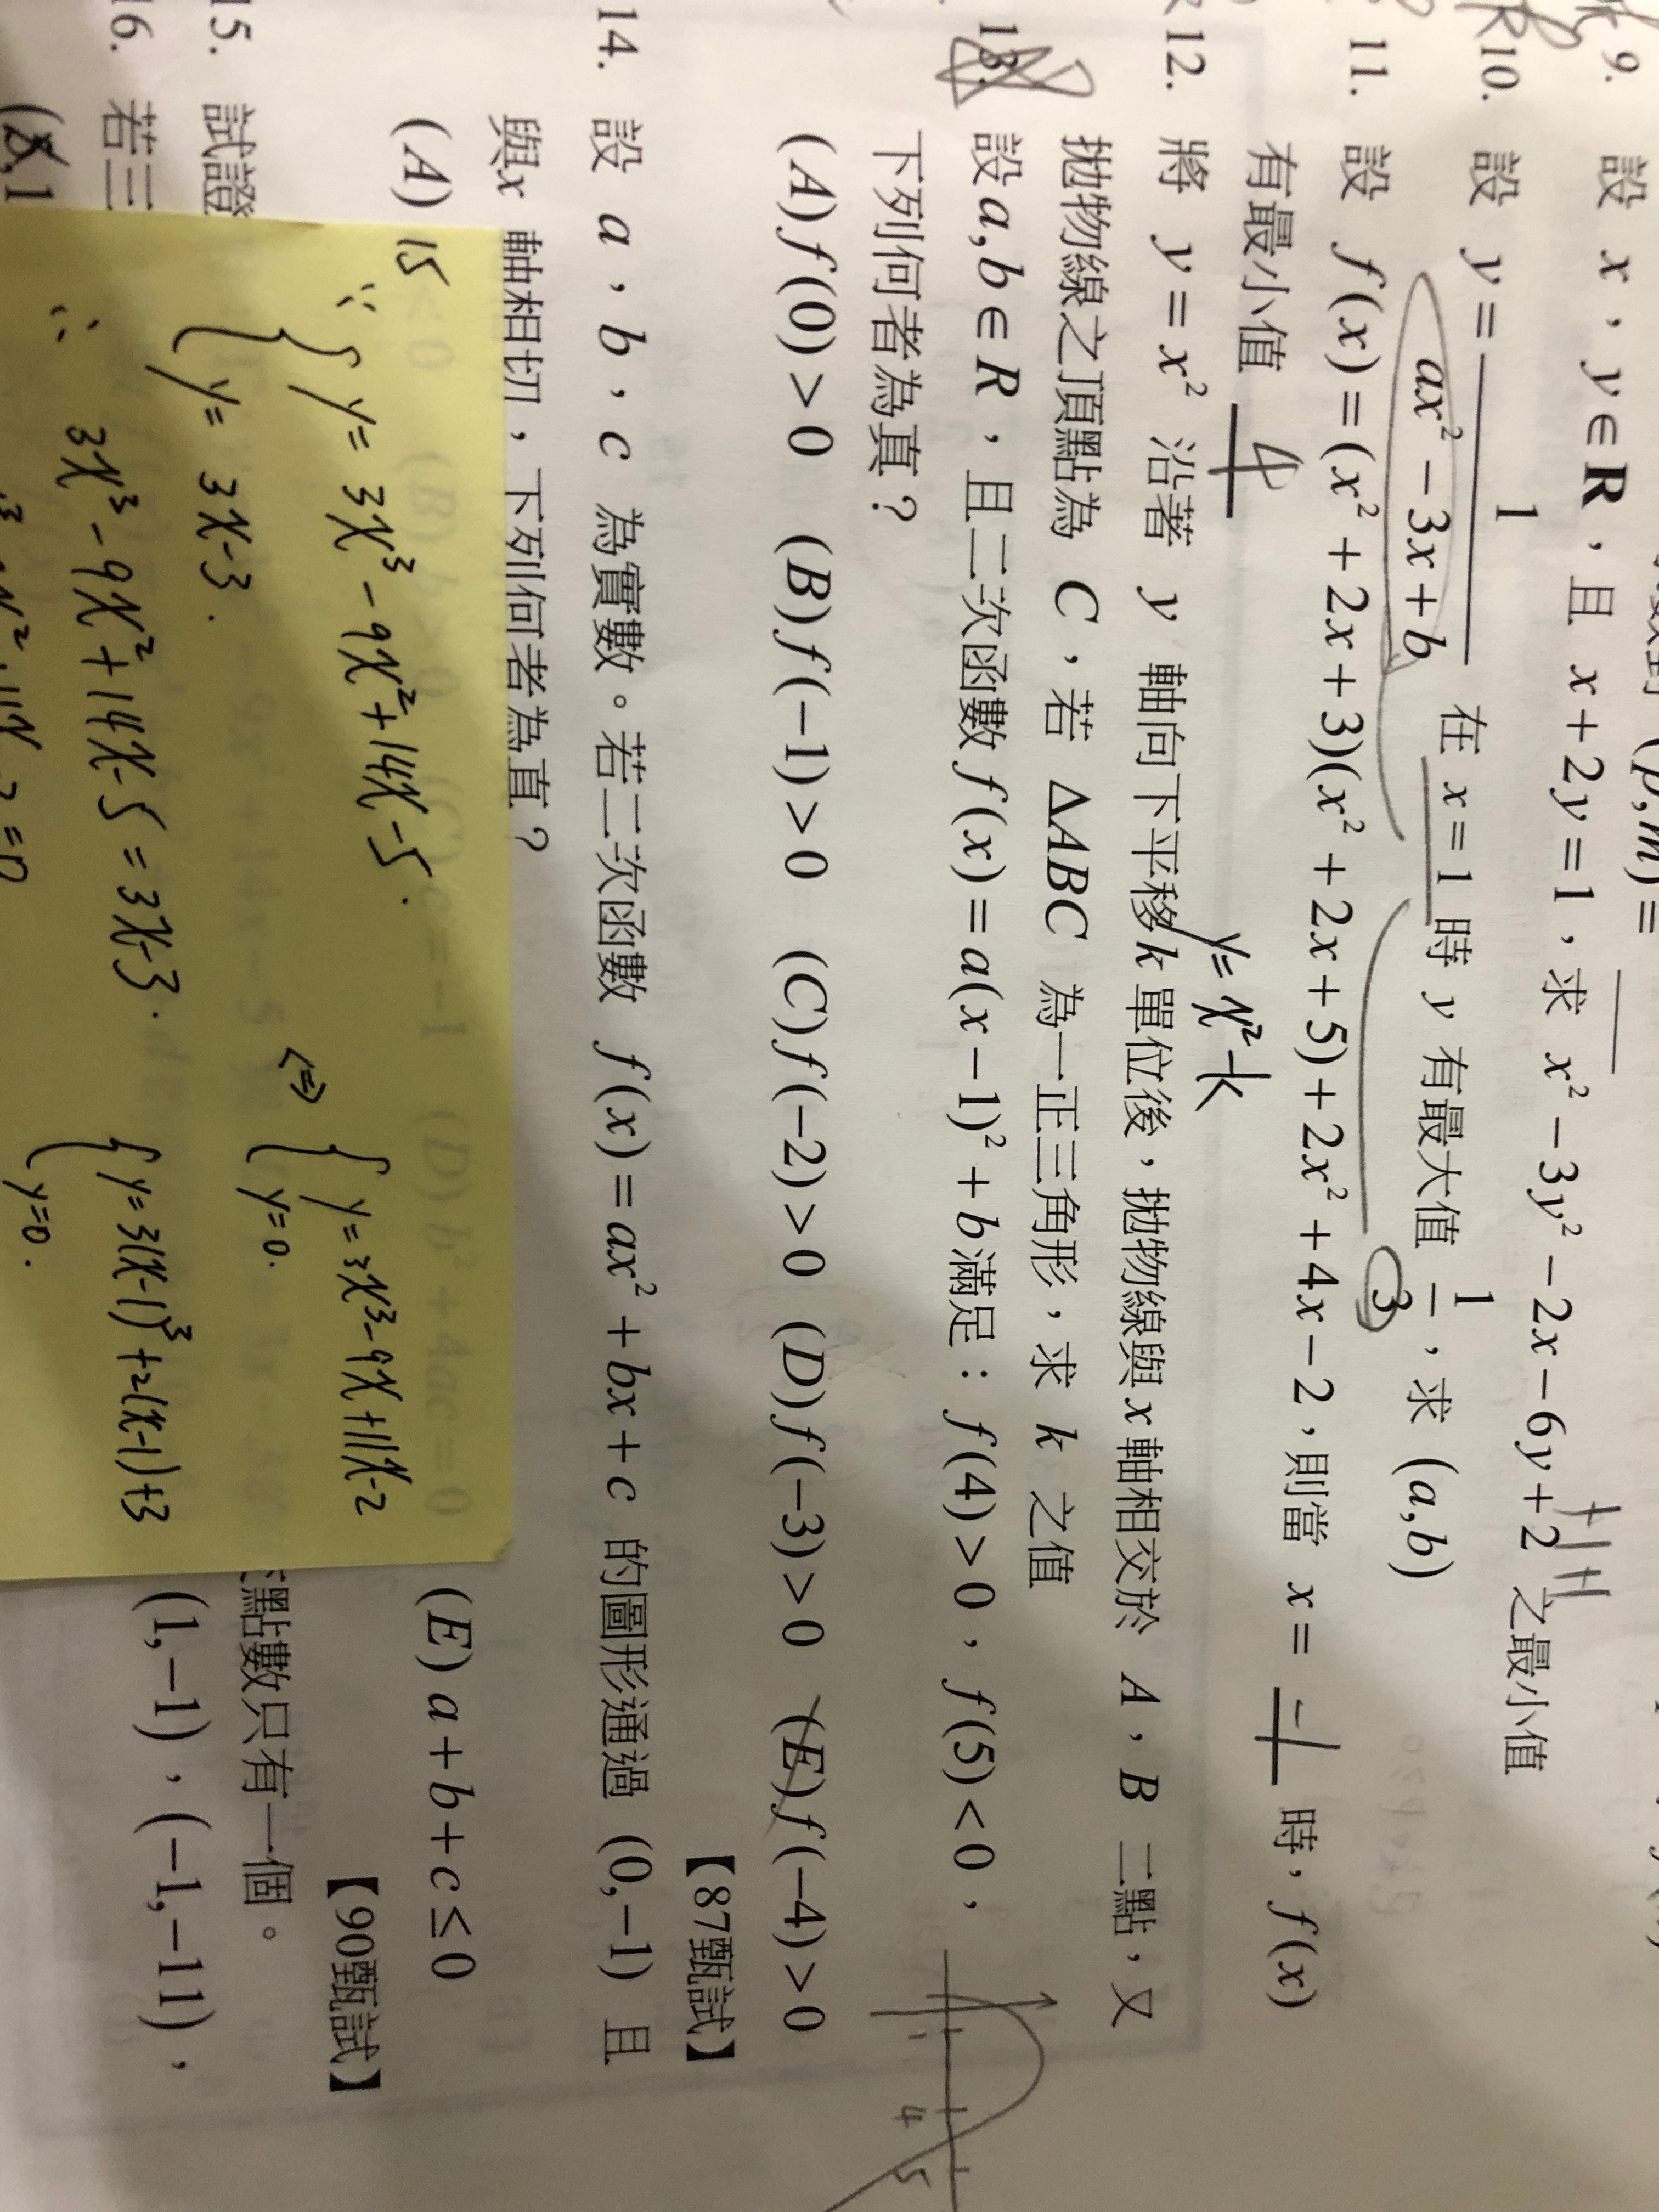 9. 設 x，y∈R，且 x+2y=1，求 x²−3y²−2x−6y+2 之最小值
10. 設 y = 1/(ax²−3x+b) 在 x=1 時 y 有最大值 1/3，求 (a,b)
11. 設 f(x)=(x²+2x+3)(x²+2x+5)+2x²+4x−2，則當 x= −1 時，f(x)
有最小值 4
y=x²−k
12. 將 y=x² 沿著 y 軸向下平移 k 單位後，拋物線與 x 軸相交於 A，B 二點，又
拋物線之頂點為 C，若 ΔABC 為一正三角形，求 k 之值
13. 設 a,b∈R，且二次函數 f(x)=a(x−1)²+b 滿足：f(4)>0，f(5)<0，
下列何者為真？
1 4 5
(A) f(0)>0 (B) f(−1)>0 (C) f(−2)>0 (D) f(−3)>0 (E) f(−4)>0
【87甄試】
14. 設 a，b，c 為實數。若二次函數 f(x)=ax²+bx+c 的圖形通過 (0,−1) 且
與x 軸相切，下列何者為真？
(A) (E) a+b+c≤0
【90甄試】
15. 試證 點數只有一個。
16. 若三 (1,−1)，(−1,−11)，
15
∵ { y=3x³−9x²+14x−5.
y=3x−3.
∴ 3x³−9x²+14x−5=3x−3.
⇔ { y=3x³−9x+11x−2
y=0.
{ y=3(x−1)³+2(x−1)+3
y=0.